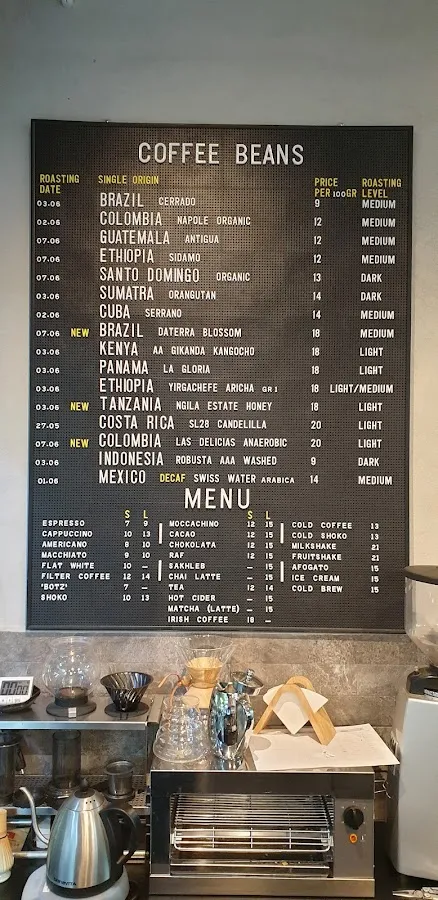 COFFEE BEANS
ROASTING DATE SINGLE ORIGIN PRICE PER 100GR ROASTING LEVEL
03.06 BRAZIL CERRADO 9 MEDIUM
02.06 COLOMBIA NAPOLE ORGANIC 12 MEDIUM
07.06 GUATEMALA ANTIGUA 12 MEDIUM
07.06 ETHIOPIA SIDAMO 12 MEDIUM
07.06 SANTO DOMINGO ORGANIC 13 DARK
03.06 SUMATRA ORANGUTAN 14 DARK
02.06 CUBA SERRANO 14 MEDIUM
07.06 NEW BRAZIL DATERRA BLOSSOM 18 MEDIUM
03.06 KENYA AA GIKANDA KANGOCHO 18 LIGHT
03.06 PANAMA LA GLORIA 18 LIGHT
03.06 ETHIOPIA YIRGACHEFE ARICHA GR1 18 LIGHT/MEDIUM
03.06 NEW TANZANIA NGILA ESTATE HONEY 18 LIGHT
27.05 COSTA RICA SL28 CANDELILLA 20 LIGHT
07.06 NEW COLOMBIA LAS DELICIAS ANAEROBIC 20 LIGHT
03.06 INDONESIA ROBUSTA AAA WASHED 9 DARK
01.06 MEXICO DECAF SWISS WATER ARABICA 14 MEDIUM
MENU
S L
ESPRESSO 7 9
CAPPUCCINO 10 13
AMERICANO 8 10
MACCHIATO 9 10
FLAT WHITE 10 —
FILTER COFFEE 12 14
'BOTZ' 7 —
SHOKO 10 13
S L
MOCCACHINO 12 15
CACAO 12 15
CHOKOLATA 12 15
RAF 12 15
SAKHLEB — 15
CHAI LATTE — 15
TEA 12 14
HOT CIDER — 15
MATCHA (LATTE) — 15
IRISH COFFEE 18 —
COLD COFFEE 13
COLD SHOKO 13
MILKSHAKE 21
FRUITSHAKE 21
AFOGATO 15
ICE CREAM 15
COLD BREW 15